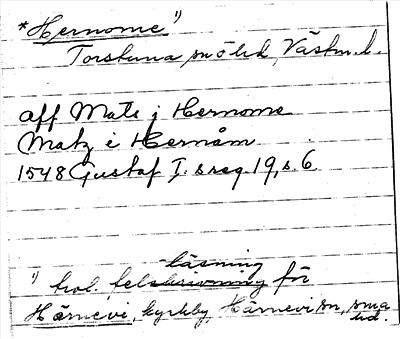 *Hernome 1)
Torstuna sn o hd, Västm. l.
aff Mats j Hernome
Matz i Hernåm
1548 Gustaf I:s reg. 19, s. 6.
läsning
1) trol. felskrivning för
Härnevi, kyrkby, Härnevi sn, sma
hd.